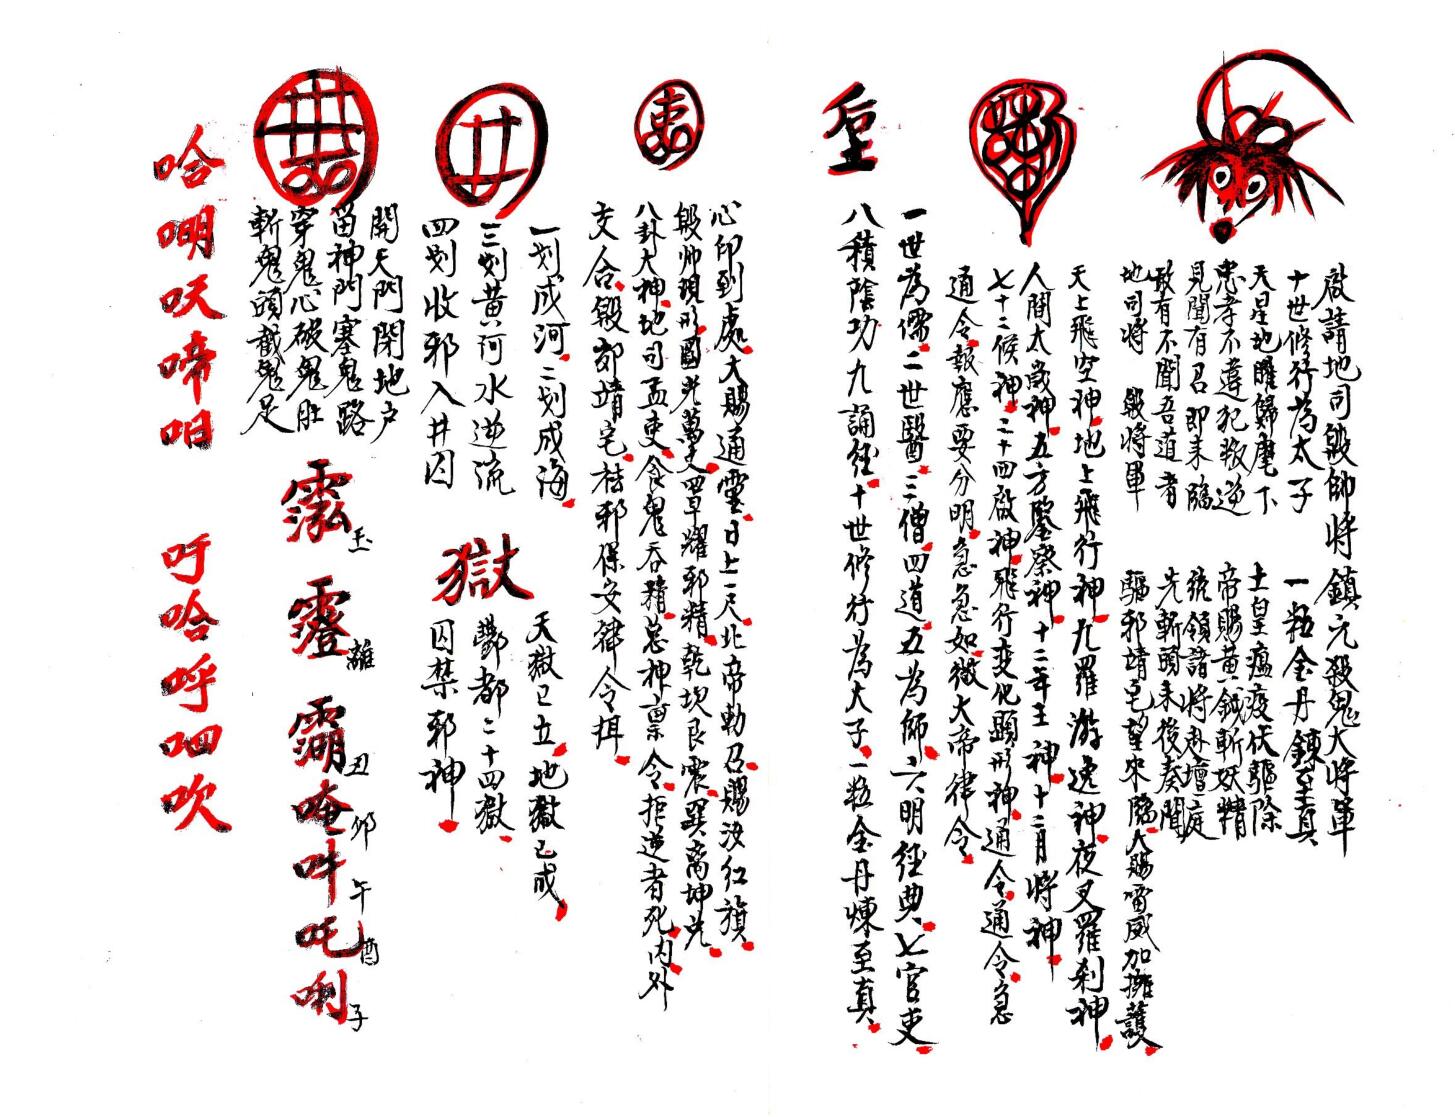 啟請地司殷帥將 鎮元殺鬼大將軍
十世修行為太子 一粒金丹鍊至真
天星地曜歸麾下 土皇瘟疫伏驅除
忠孝不違犯叛逆 帝賜黃鉞斬妖精
見聞有召即來臨 統領諸將赴壇庭
敢有不聞吾道者 先斬頭來後奏聞
地司將 殷將軍 驅邪靖宅望來臨大賜雷威加擁護
天上飛空神地上飛行神九羅游逸神夜叉羅剎神
人間太歲神五方鑒察神十二年王神十二月將神
七十二候神二十四啟神飛行变化顯形神通令通令急
通令報應要分明急急如徵大帝律令
一世為儒二世醫三僧四道五為師六明經典七官吏
八積陰功九誦經十世修行為太子一粒金丹煉至真
心印到處大賜通靈日上一尺北帝勅召賜汝紅旗
殷帅現形圓光萬丈罩耀邪精乾坎艮震巽离坤兑
八卦大神地司孟吏食鬼吞精总神禀令拒逆者死内外
交合殷郊靖宅祛邪保安律令揖
一划成河二划成海
三划黄河水逆流
四划收邪入井囚
獄
天獄已立地獄已成
酆都二十四獄
囚禁邪神
開天門閉地户
留神門塞鬼路
穿鬼心破鬼肚
斬鬼頭截鬼足
玉
離
丑
唵 卯
吽 午
吒 酉
唎 子
哈 明 呋 啼 咱 吁 哈 呼 呬 吹